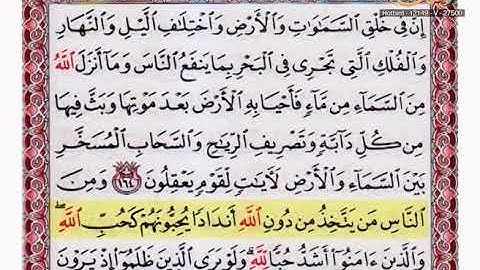 Hotbird - 12149 - V - 27500
إِنَّ فِي خَلْقِ السَّمَٰوَٰتِ وَالْأَرْضِ وَاخْتِلَٰفِ الَّيْلِ وَالنَّهَارِ
وَالْفُلْكِ الَّتِي تَجْرِي فِي الْبَحْرِ بِمَا يَنفَعُ النَّاسَ وَمَا أَنزَلَ اللَّهُ
مِنَ السَّمَاءِ مِن مَّاءٍ فَأَحْيَا بِهِ الْأَرْضَ بَعْدَ مَوْتِهَا وَبَثَّ فِيهَا
مِن كُلِّ دَابَّةٍ وَتَصْرِيفِ الرِّيَٰحِ وَالسَّحَابِ الْمُسَخَّرِ
بَيْنَ السَّمَاءِ وَالْأَرْضِ لَآيَٰتٍ لِّقَوْمٍ يَعْقِلُونَ ١٦٤ وَمِنَ
النَّاسِ مَن يَتَّخِذُ مِن دُونِ اللَّهِ أَندَادًا يُحِبُّونَهُمْ كَحُبِّ اللَّهِ ۖ
وَالَّذِينَ ءَامَنُوا أَشَدُّ حُبًّا لِّلَّهِ ۗ وَلَوْ يَرَى الَّذِينَ ظَلَمُوا إِذْ يَرَوْنَ